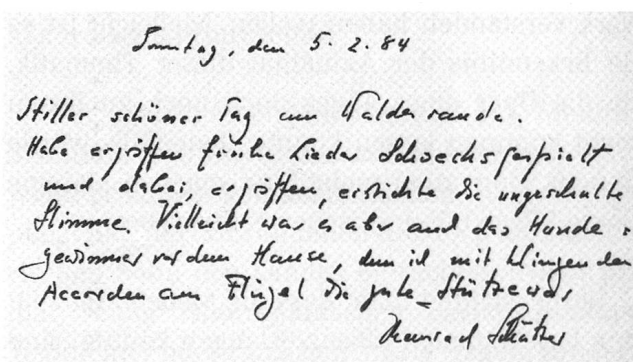 Sonntag, den 5. 2. 84
Stiller schöner Tag am Walderrande.
Habe ergriffen frühe Lieder Schoecks gespielt
und dabei, ergriffen, erstickte die ungeschulte
Stimme. Vielleicht war es aber auch das Hunde-
gewimmer vor dem Hause, dem ich mit klingenden
Accorden am Flügel die gute Stütze war,